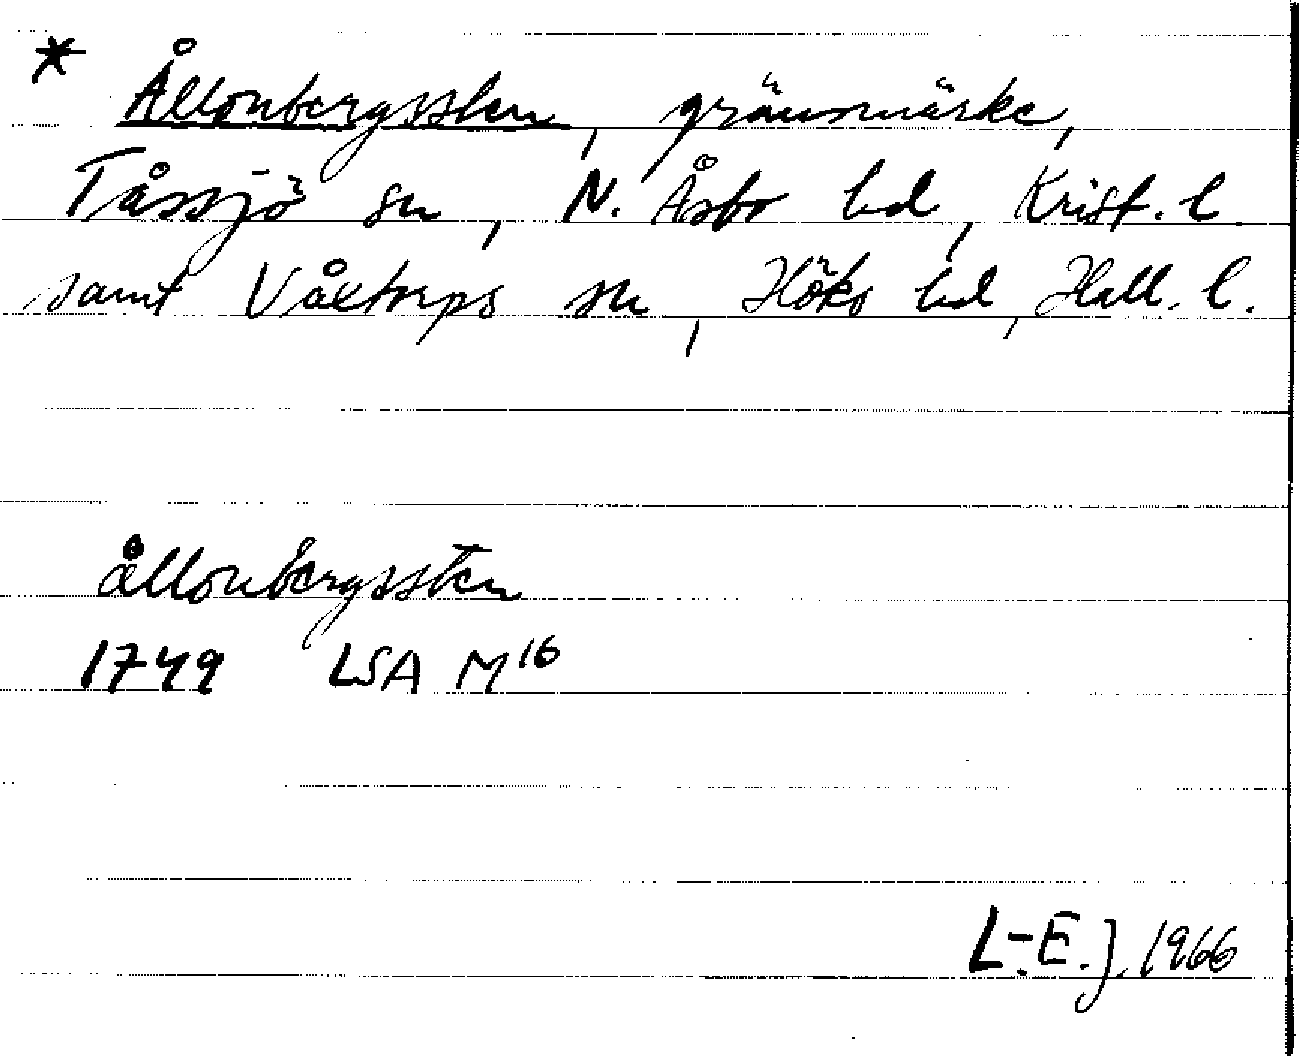 * Ållonbergssten, gränsmärke,
Tåssjö sn, N. Åsbo hd, Krist. l.
samt Våxtorps sn, Höks hd, Hall. l.
ållonbergssten
1749 LSA M16
L.-E. J. 1966